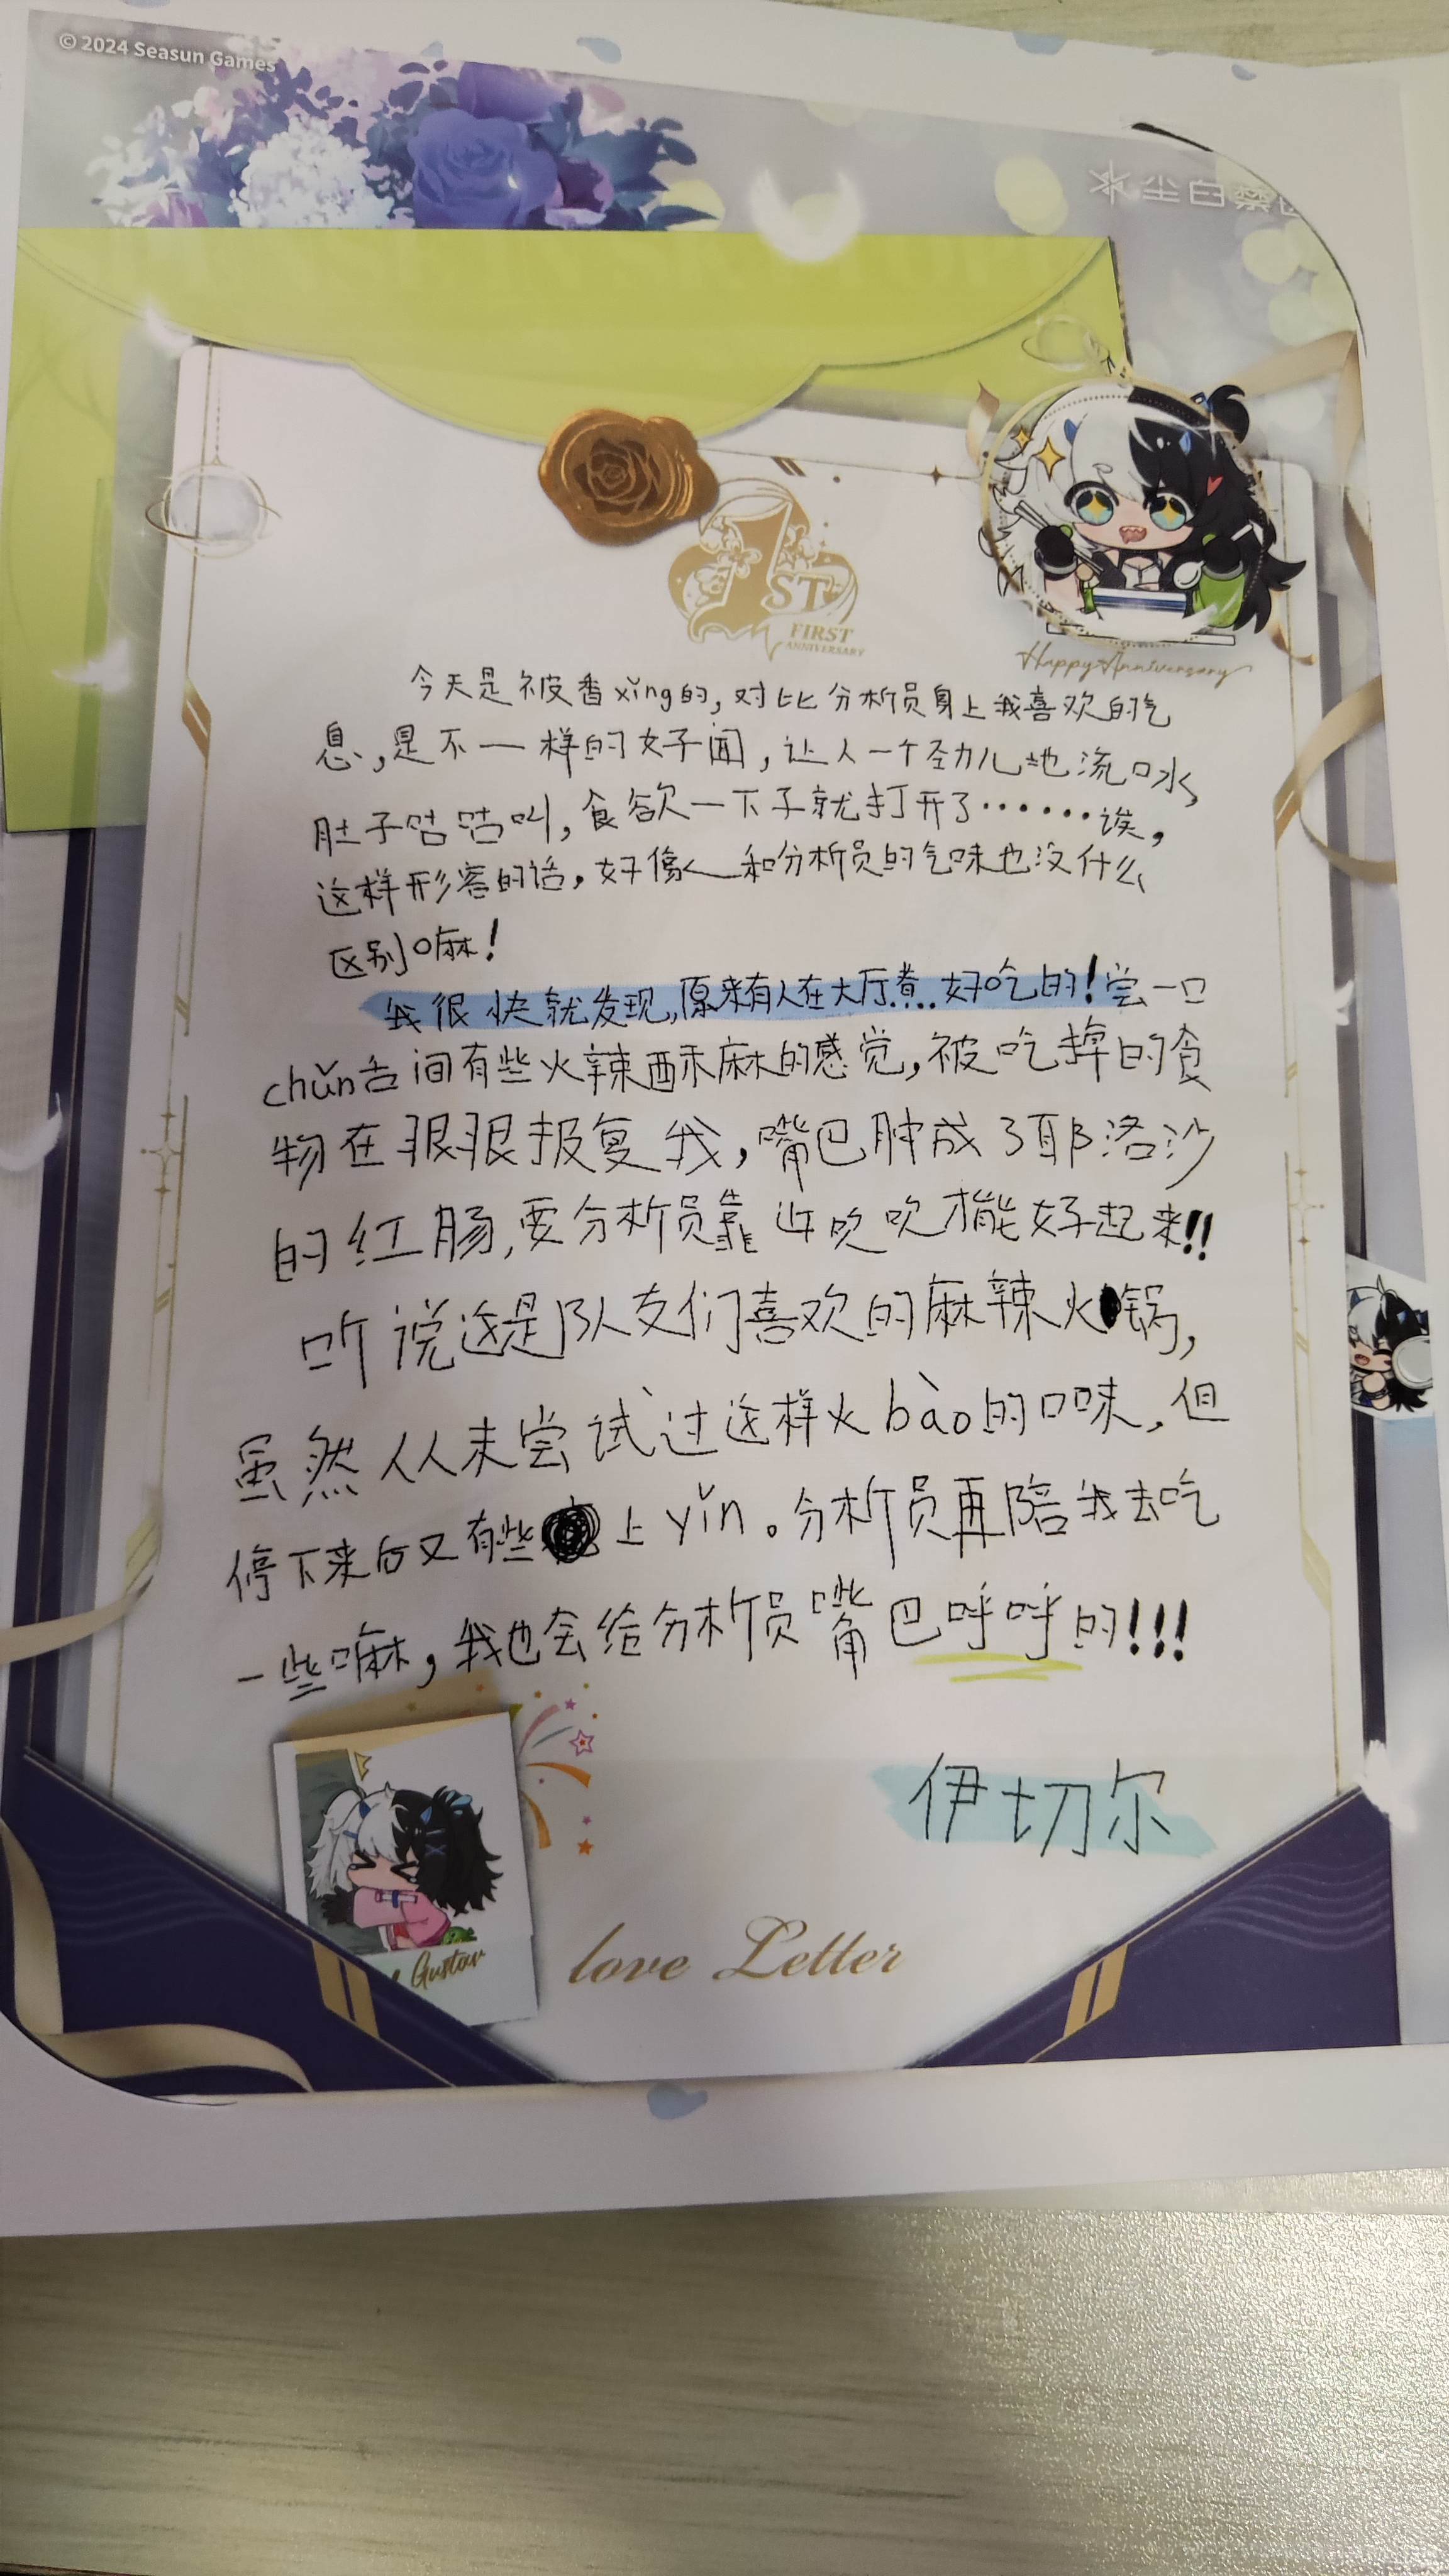 © 2024 Seasun Games
尘白禁区
1ST
FIRST
ANNIVERSARY
Happy Anniversary
今天是被香xǐng的,对比分析员身上我喜欢的气
息,是不一样的好闻,让人一个劲儿地流口水,
肚子咕咕叫,食欲一下子就打开了……诶,
这样形容的话,好像和分析员的气味也没什么
区别嘛!
我很快就发现,原来有人在大厅煮…好吃的!尝一口
chǔn舌间有些火辣酥麻的感觉,被吃掉的食
物在狠狠报复我,嘴巴肿成了耶洛沙
的红肠,要分析员靠近吹吹才能好起来!!
听说这是队友们喜欢的麻辣火锅,
虽然从未尝试过这样火bào的口味,但
停下来后又有些上yǐn。分析员再陪我去吃
一些嘛,我也会给分析员嘴巴呼呼的!!!
伊切尔
Gustav
love Letter